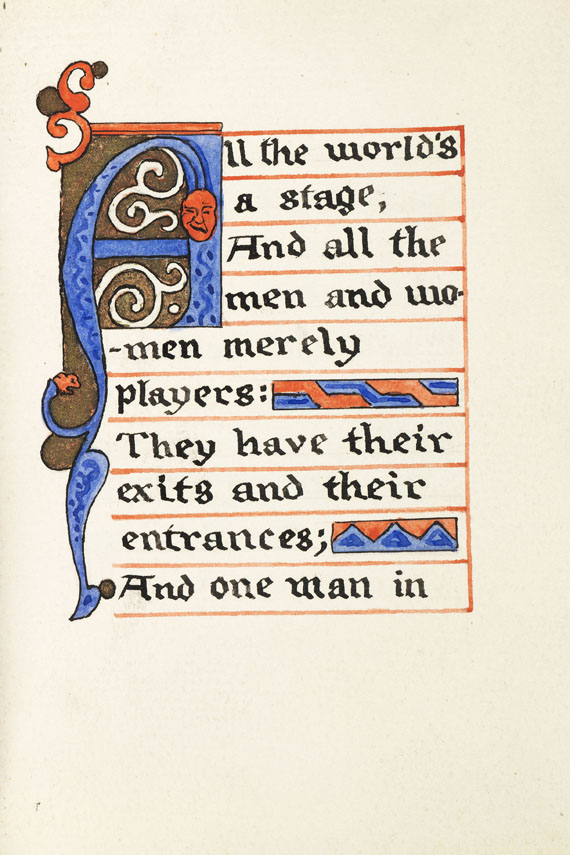 All the world's
a stage,
And all the
men and wo-
-men merely
players:
They have their
exits and their
entrances;
And one man in